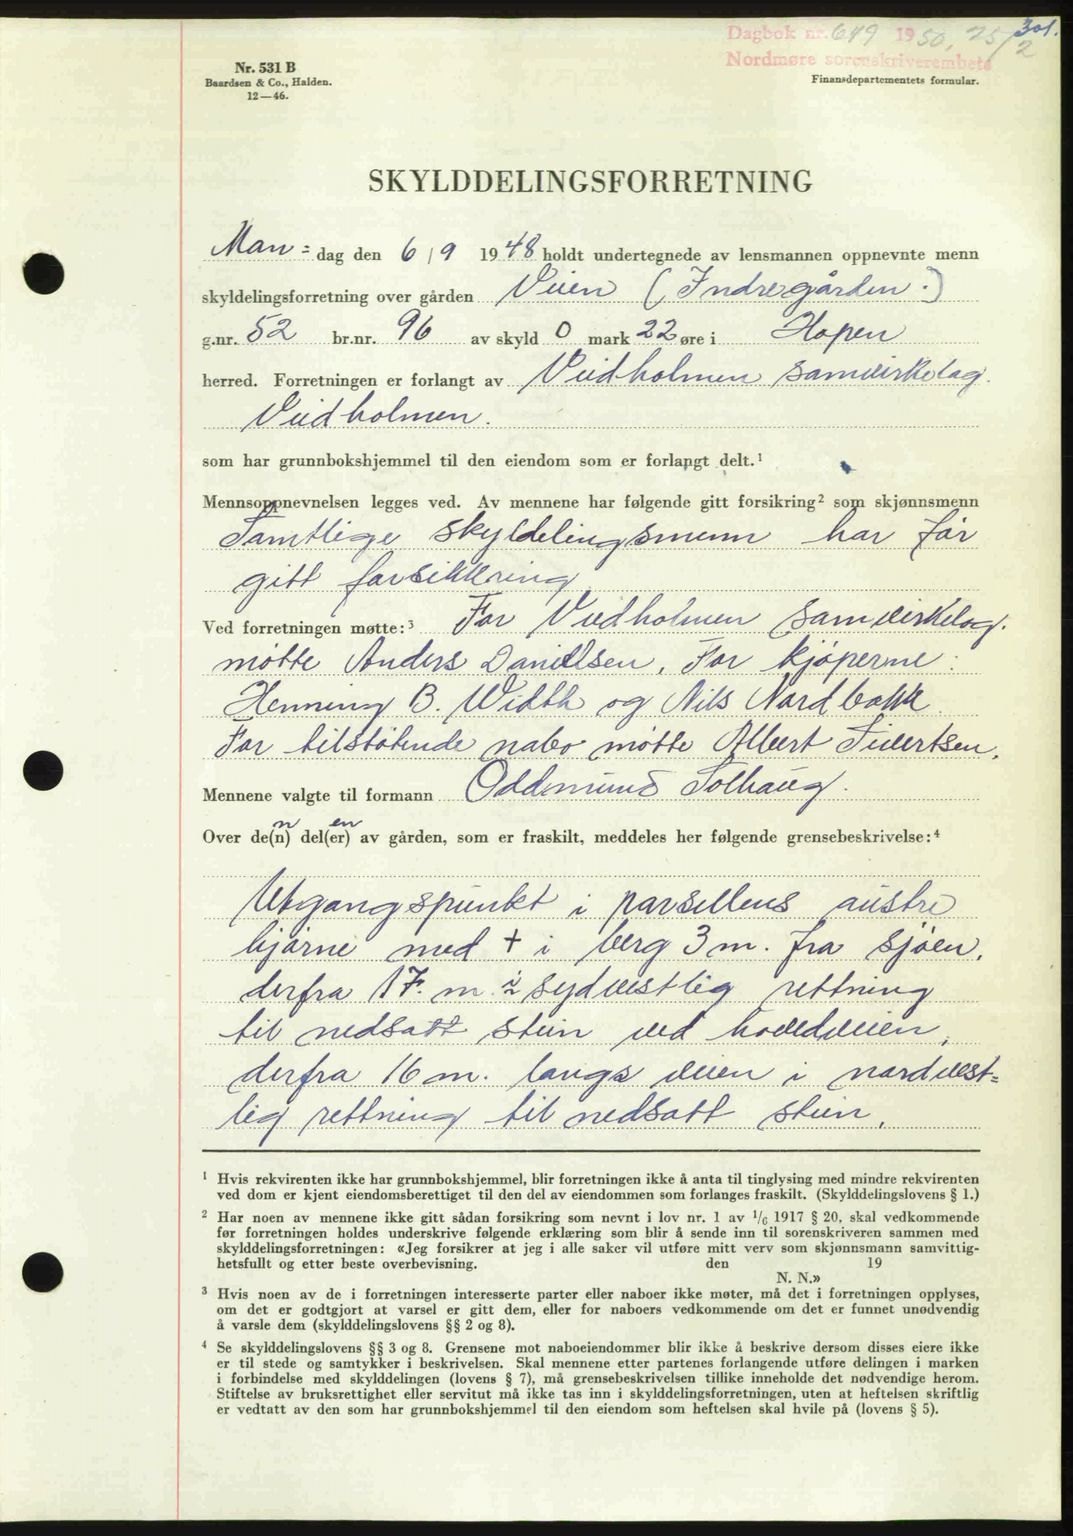 301.
Dagbok nr. 649 1950, 25/2
Nordmøre sorenskriverembete
Nr. 531 B
Baardsen & Co., Halden.
12—46.
Finansdepartementets formular.
SKYLDDELINGSFORRETNING
Man= dag den 6/9 1948 holdt undertegnede av lensmannen oppnevnte menn
skyldelingsforretning over gården Veien (Indregården.)
g.nr. 52 br.nr. 96 av skyld 0 mark 22 øre i Hopen
herred. Forretningen er forlangt av Veidholmen samvirkelag.
Veidholmen.
som har grunnbokshjemmel til den eiendom som er forlangt delt.¹
Mennsoppnevnelsen legges ved. Av mennene har følgende gitt forsikring² som skjønnsmenn
Samtlige skyldelingsmenn har før
gitt forsikkring
Ved forretningen møtte:³ For Veidholmen samvirkelag.
møtte Anders Danielsen. For kjøperne:
Henning B. Width og Nils Nordbakk.
For tilstøtende nabo møtte Albert Sivertsen.
Mennene valgte til formann Oddmund Solhaug.
Over de(n) del(er) av gården, som er fraskilt, meddeles her følgende grensebeskrivelse:⁴
Utgangspunkt i parsellens austre
hjørne med + i berg 3 m. fra sjøen,
derfra 17. m. i sydvestlig rettning
til nedsatt stein ved hovedveien,
derfra 16 m. langs veien i nordvest=
lig rettning til nedsatt stein,
¹ Hvis rekvirenten ikke har grunnbokshjemmel, blir forretningen ikke å anta til tinglysing med mindre rekvirenten
ved dom er kjent eiendomsberettiget til den del av eiendommen som forlanges fraskilt. (Skylddelingslovens § 1.)
² Har noen av mennene ikke gitt sådan forsikring som nevnt i lov nr. 1 av 1/6 1917 § 20, skal vedkommende
før forretningen holdes underskrive følgende erklæring som blir å sende inn til sorenskriveren sammen med
skylddelingsforretningen: «Jeg forsikrer at jeg i alle saker vil utføre mitt verv som skjønnsmann samvittig-
hetsfullt og etter beste overbevisning. den 19
N. N.»
³ Hvis noen av de i forretningen interesserte parter eller naboer ikke møter, må det i forretningen opplyses,
om det er godtgjort at varsel er gitt dem, eller for naboers vedkommende om det er funnet unødvendig
å varsle dem (skylddelingslovens §§ 2 og 8).
⁴ Se skylddelingslovens §§ 3 og 8. Grensene mot naboeiendommer blir ikke å beskrive dersom disses eiere ikke
er til stede og samtykker i beskrivelsen. Skal mennene etter partenes forlangende utføre delingen i marken
i forbindelse med skylddelingen (lovens § 7), må grensebeskrivelsen tillike inneholde det nødvendige herom.
Stiftelse av bruksrettighet eller servitut må ikke tas inn i skylddelingsforretningen, uten at heftelsen skriftlig
er vedtatt av den som har grunnbokshjemmel til den eiendom som heftelsen skal hvile på (lovens § 5).